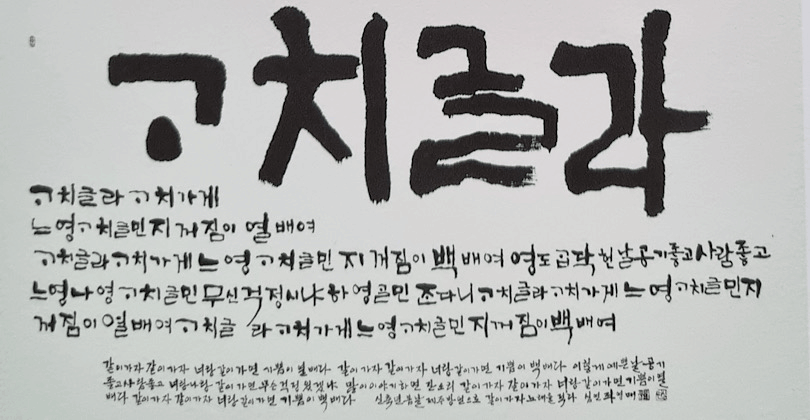 ᄀᆞ치글라
ᄀᆞ치글라 ᄀᆞ치가게
느영ᄀᆞ치글민 지꺼짐이 열 배여
ᄀᆞ치글라 ᄀᆞ치가게 느영 ᄀᆞ치글민 지꺼짐이 백 배여 영도 곱딱헌날 공기좋고 사람좋고
느영나영 ᄀᆞ치글민 무신걱정시냐 하영골민 존다니 ᄀᆞ치글라 ᄀᆞ치가게 느영 ᄀᆞ치글민 지
꺼짐이 열 배여 ᄀᆞ치글라 ᄀᆞ치가게 느영 ᄀᆞ치글민 지꺼짐이 백 배여
같이가자 같이가자 너랑같이가면 기쁨이 열배다 같이가자 같이가자 너랑같이가면 기쁨이 백배다 이렇게 예쁜날 공기
좋고사람좋고 너랑나랑 같이가면 무슨걱정 있겠냐 많이이야기하면 잔소리 같이가자 같이가자 너랑같이가면 기쁨이열
배다 같이가자 같이가자 너랑같이가면 기쁨이 백배다 신축년봄날 제주방언으로 같이가자노래를 쓰다